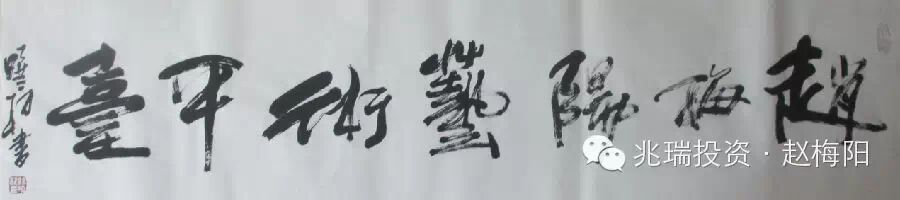 趙梅陽藝術平臺
兆瑞投资·赵梅阳